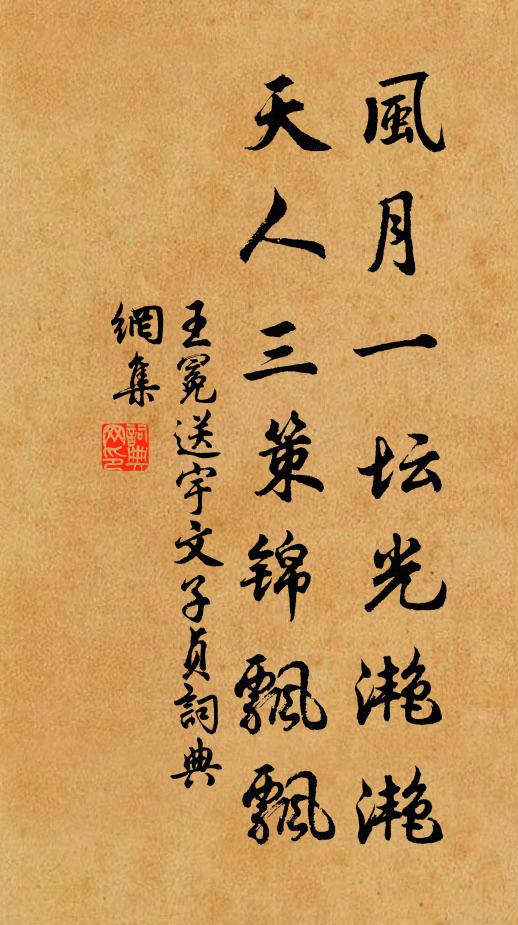 風月一坛光滟滟
天人三策锦飄飄
王冕送宇文子贞詞典
網集
詞典
网印